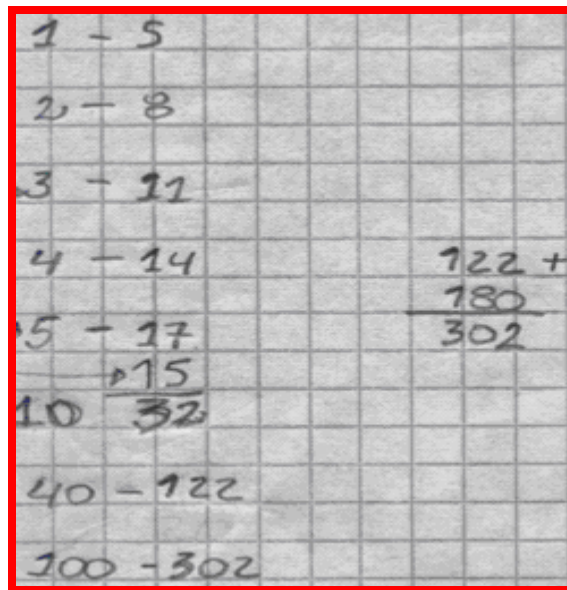 1 - 5
2 - 8
3 - 11
4 - 14
5 - 17
15
10 32
40 - 122
100 - 302
122 +
180
302